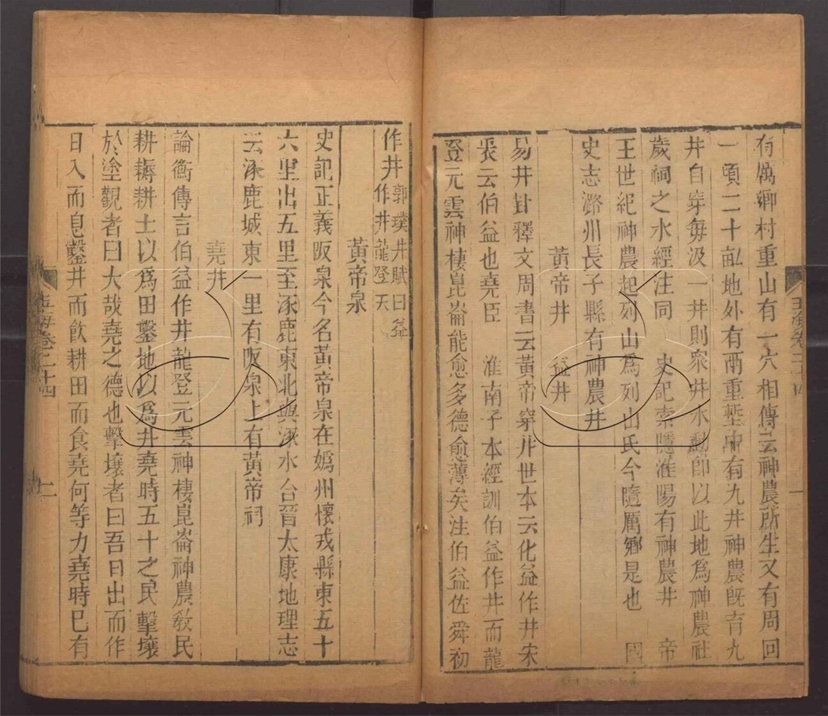 有厲鄉村重山有一穴相傳云神農所生又有周回
一頃二十畝地外有兩重塹中有九井神農旣育九
井自穿每汲一井則衆井水動卽以此地爲神農社
歲祠之水經注同　史記索隱淮陽有神農井　帝
王世紀神農起列山爲列山氏今隨厲鄉是也　國
史志潞州長子縣有神農井
黃帝井　益井
易井卦釋文周書云黃帝穿井世本云化益作井宋
衷云伯益也堯臣　淮南子本經訓伯益作井而龍
登元雲神棲崑崙能愈多德愈薄矣注伯益佐舜初
玉海卷二十四
一
作井郭璞井賦曰益
作井龍登天
黃帝泉
史記正義阪泉今名黃帝泉在嬀州懷戎縣東五十
六里出五里至涿鹿東北與涿水合晉太康地理志
云涿鹿城東一里有阪泉上有黃帝祠
堯井
論衡傳言伯益作井龍登元雲神棲崑崙神農敎民
耕耨耕土以爲田鑿地以爲井堯時五十之民擊壤
於塗觀者曰大哉堯之德也擊壤者曰吾日出而作
日入而息鑿井而飮耕田而食堯何等力堯時已有
玉海卷二十四
二